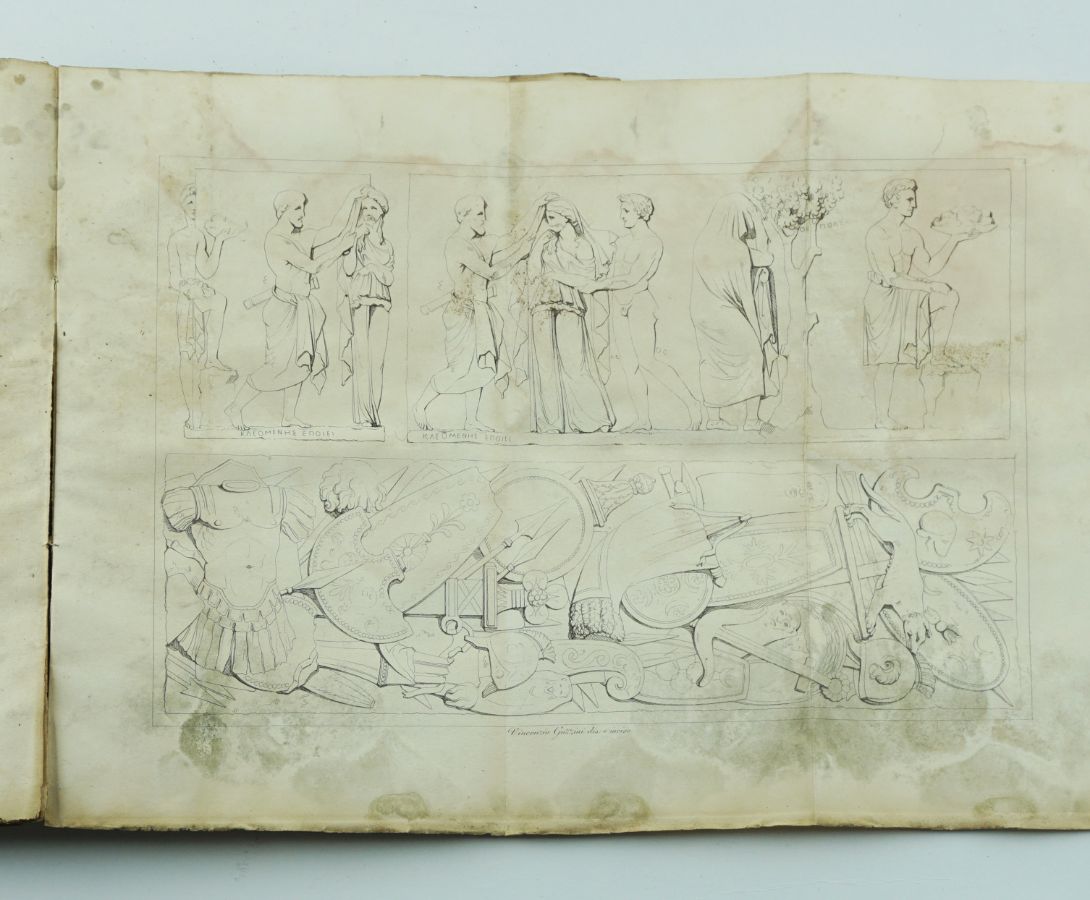 ΚΛΕΩΜΕΝΗΣ ΕΠΟΙΕΙ
ΚΛΕΩΜΕΝΗΣ ΕΠΟΙΕΙ
Vincenzio Gozzini dis. e incise